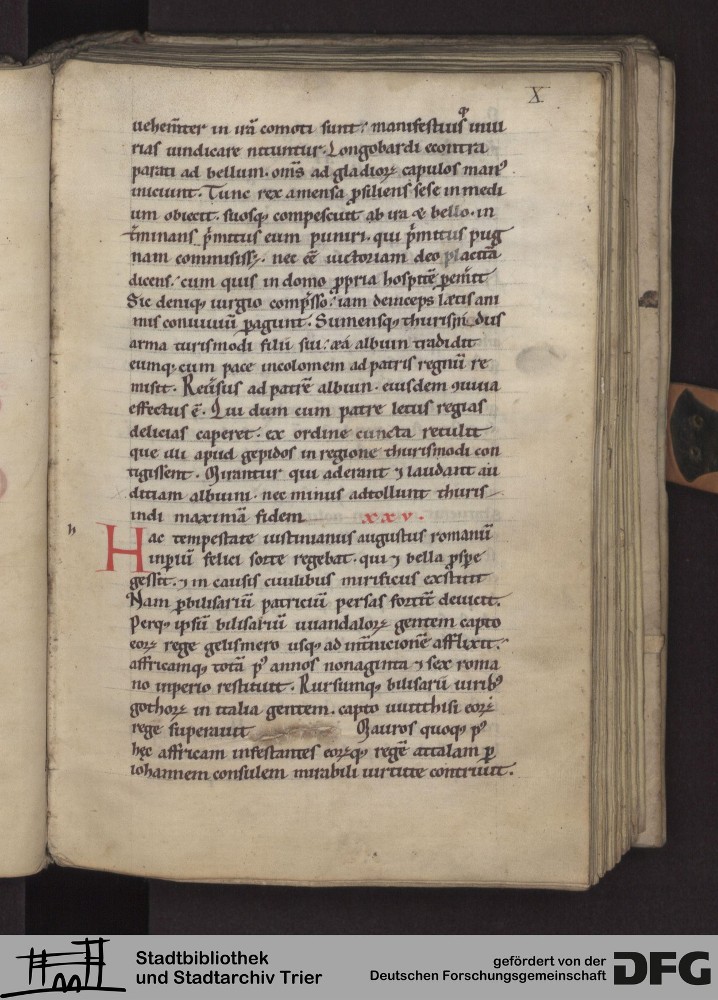 X
uehem̄ter in irā comoti sunt. manifestius q̄ iniu
rias uindicare nituntur. Longobardi econtra
parati ad bellum. om̄s ad gladioꝝ capulos manꝰ
iniciunt. Tunc rex amensa ꝓsiliens sese in medi
um obiecit. suosqꝫ compescuit ab ira & bello. in
t̄minans p̄mitus eum puniri. qui p̄mitus pug
nam commisisset. nec eē uictoriam deo placitā
dicens. cum quis in domo ꝓpria hospitē ꝑemit
Sic deniqꝫ iurgio comp̄sso. iam deinceps lætis ani
mis conuiuiū ꝑagunt. Sumensqꝫ thurisindus
arma turismodi filii sui. ea albuin tradidit
eumqꝫ cum pace incolomem ad patris regnū re
misit. Reūsus ad patrē albuin. eiusdem ꝯuiua
effectus ē. Qui dum cum patre letus regias
delicias caperet. ex ordine cuncta retulit
que illi apud gepidos in regione thurismodi con
tigissent. Mirantur qui aderant ⁊ laudant au
ditiam albuini. nec minus adtollunt thuris
indi maximā fidem xxv.
h
Hac tempestate iustinianus augustus romanū
inperiū felici sorte regebat. qui ⁊ bella ꝓspe
gessit. ⁊ in causis ciuilibus mirificus exstitit
Nam ꝑ bilisariū patriciū persas fortit̄ deuicit.
Perqꝫ ipsū bilisariū uuandaloꝝ gentem capto
eoꝝ rege gelismero usqꝫ ad int̄nicionē afflixit.
affricamqꝫ totā pꝰ annos nonaginta ⁊ sex roma
no inperio restituit. Rursumqꝫ bilisarii uiribꝰ
gothoꝝ in italia gentem. capto uuitthisi eoꝝ
rege superauit Mauros quoqꝫ pꝰ
hęc affricam infestantes eoꝝqꝫ regē attalam ꝑ
iohannem consulem mirabili uirtute contriuit.
Stadtbibliothek
und Stadtarchiv Trier
gefördert von der
Deutschen Forschungsgemeinschaft
DFG